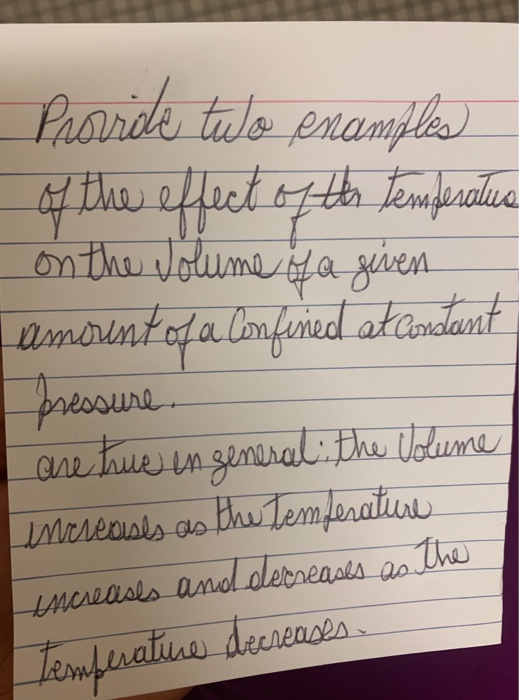 Provide two examples
of the effect of the temperature
on the Volume of a given
amount of a Confined at Constant
pressure.
are true in general: the Volume
increases as the temperature
increases and decreases as the
temperature decreases.